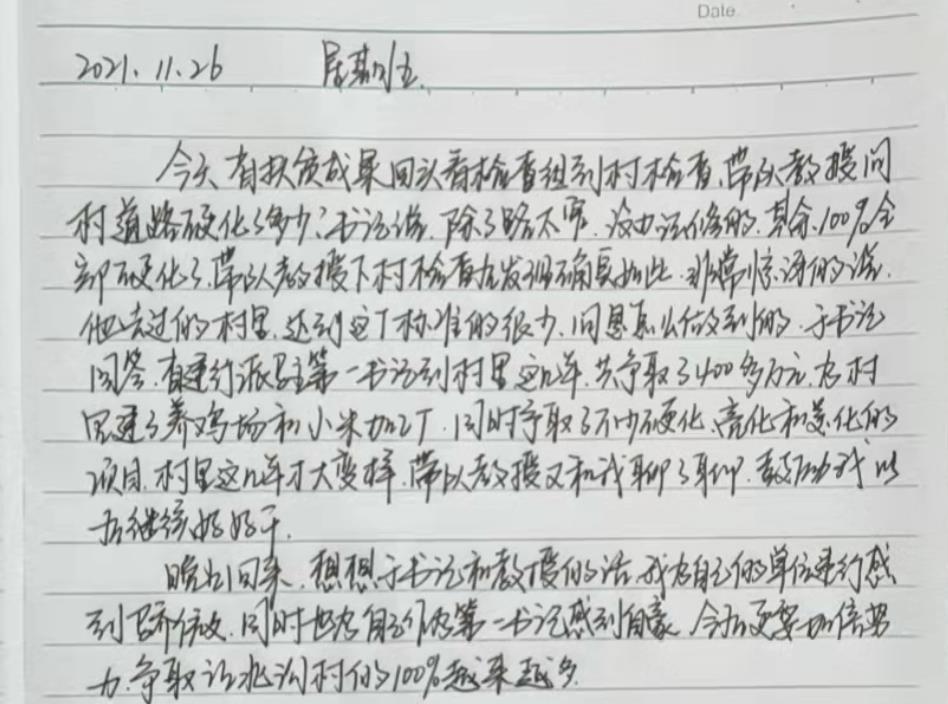 Date
2021.11.26 星期五.
今天有扶贫成果回头看检查组到村检查,带队教授问
村道路硬化了多少?书记说,除了路太窄,没办法修的,其余100%全
部硬化了,带队教授下村检查后发现确实如此,非常惊讶的说,
他去过的村里,达到这个标准的很少,问是怎么做到的,于书记
回答,自建行派驻第一书记到村里这几年,共争取了400多万元,为村
里建了养鸡场和小米加工厂,同时争取了不少硬化、亮化和美化的
项目,村里这几年才大变样,带队教授又和我聊了聊,鼓励我以
后继续好好干.
晚上回来,想想于书记和教授的话,我为自己的单位建行感
到骄傲,同时也为自己作为第一书记感到自豪,今后更要加倍努
力,争取让北沟村的100%越来越多.